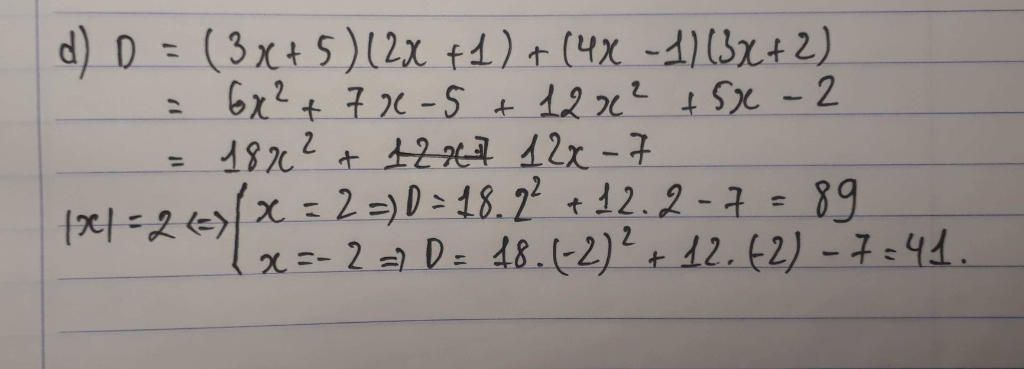 d) D = (3x + 5)(2x + 1) + (4x - 1)(3x + 2)
= 6x² + 7x - 5 + 12x² + 5x - 2
= 18x² + 12x - 7 12x - 7
|x| = 2 <=> { x = 2 => D = 18.2² + 12.2 - 7 = 89
x = -2 => D = 18.(-2)² + 12.(-2) - 7 = 41.